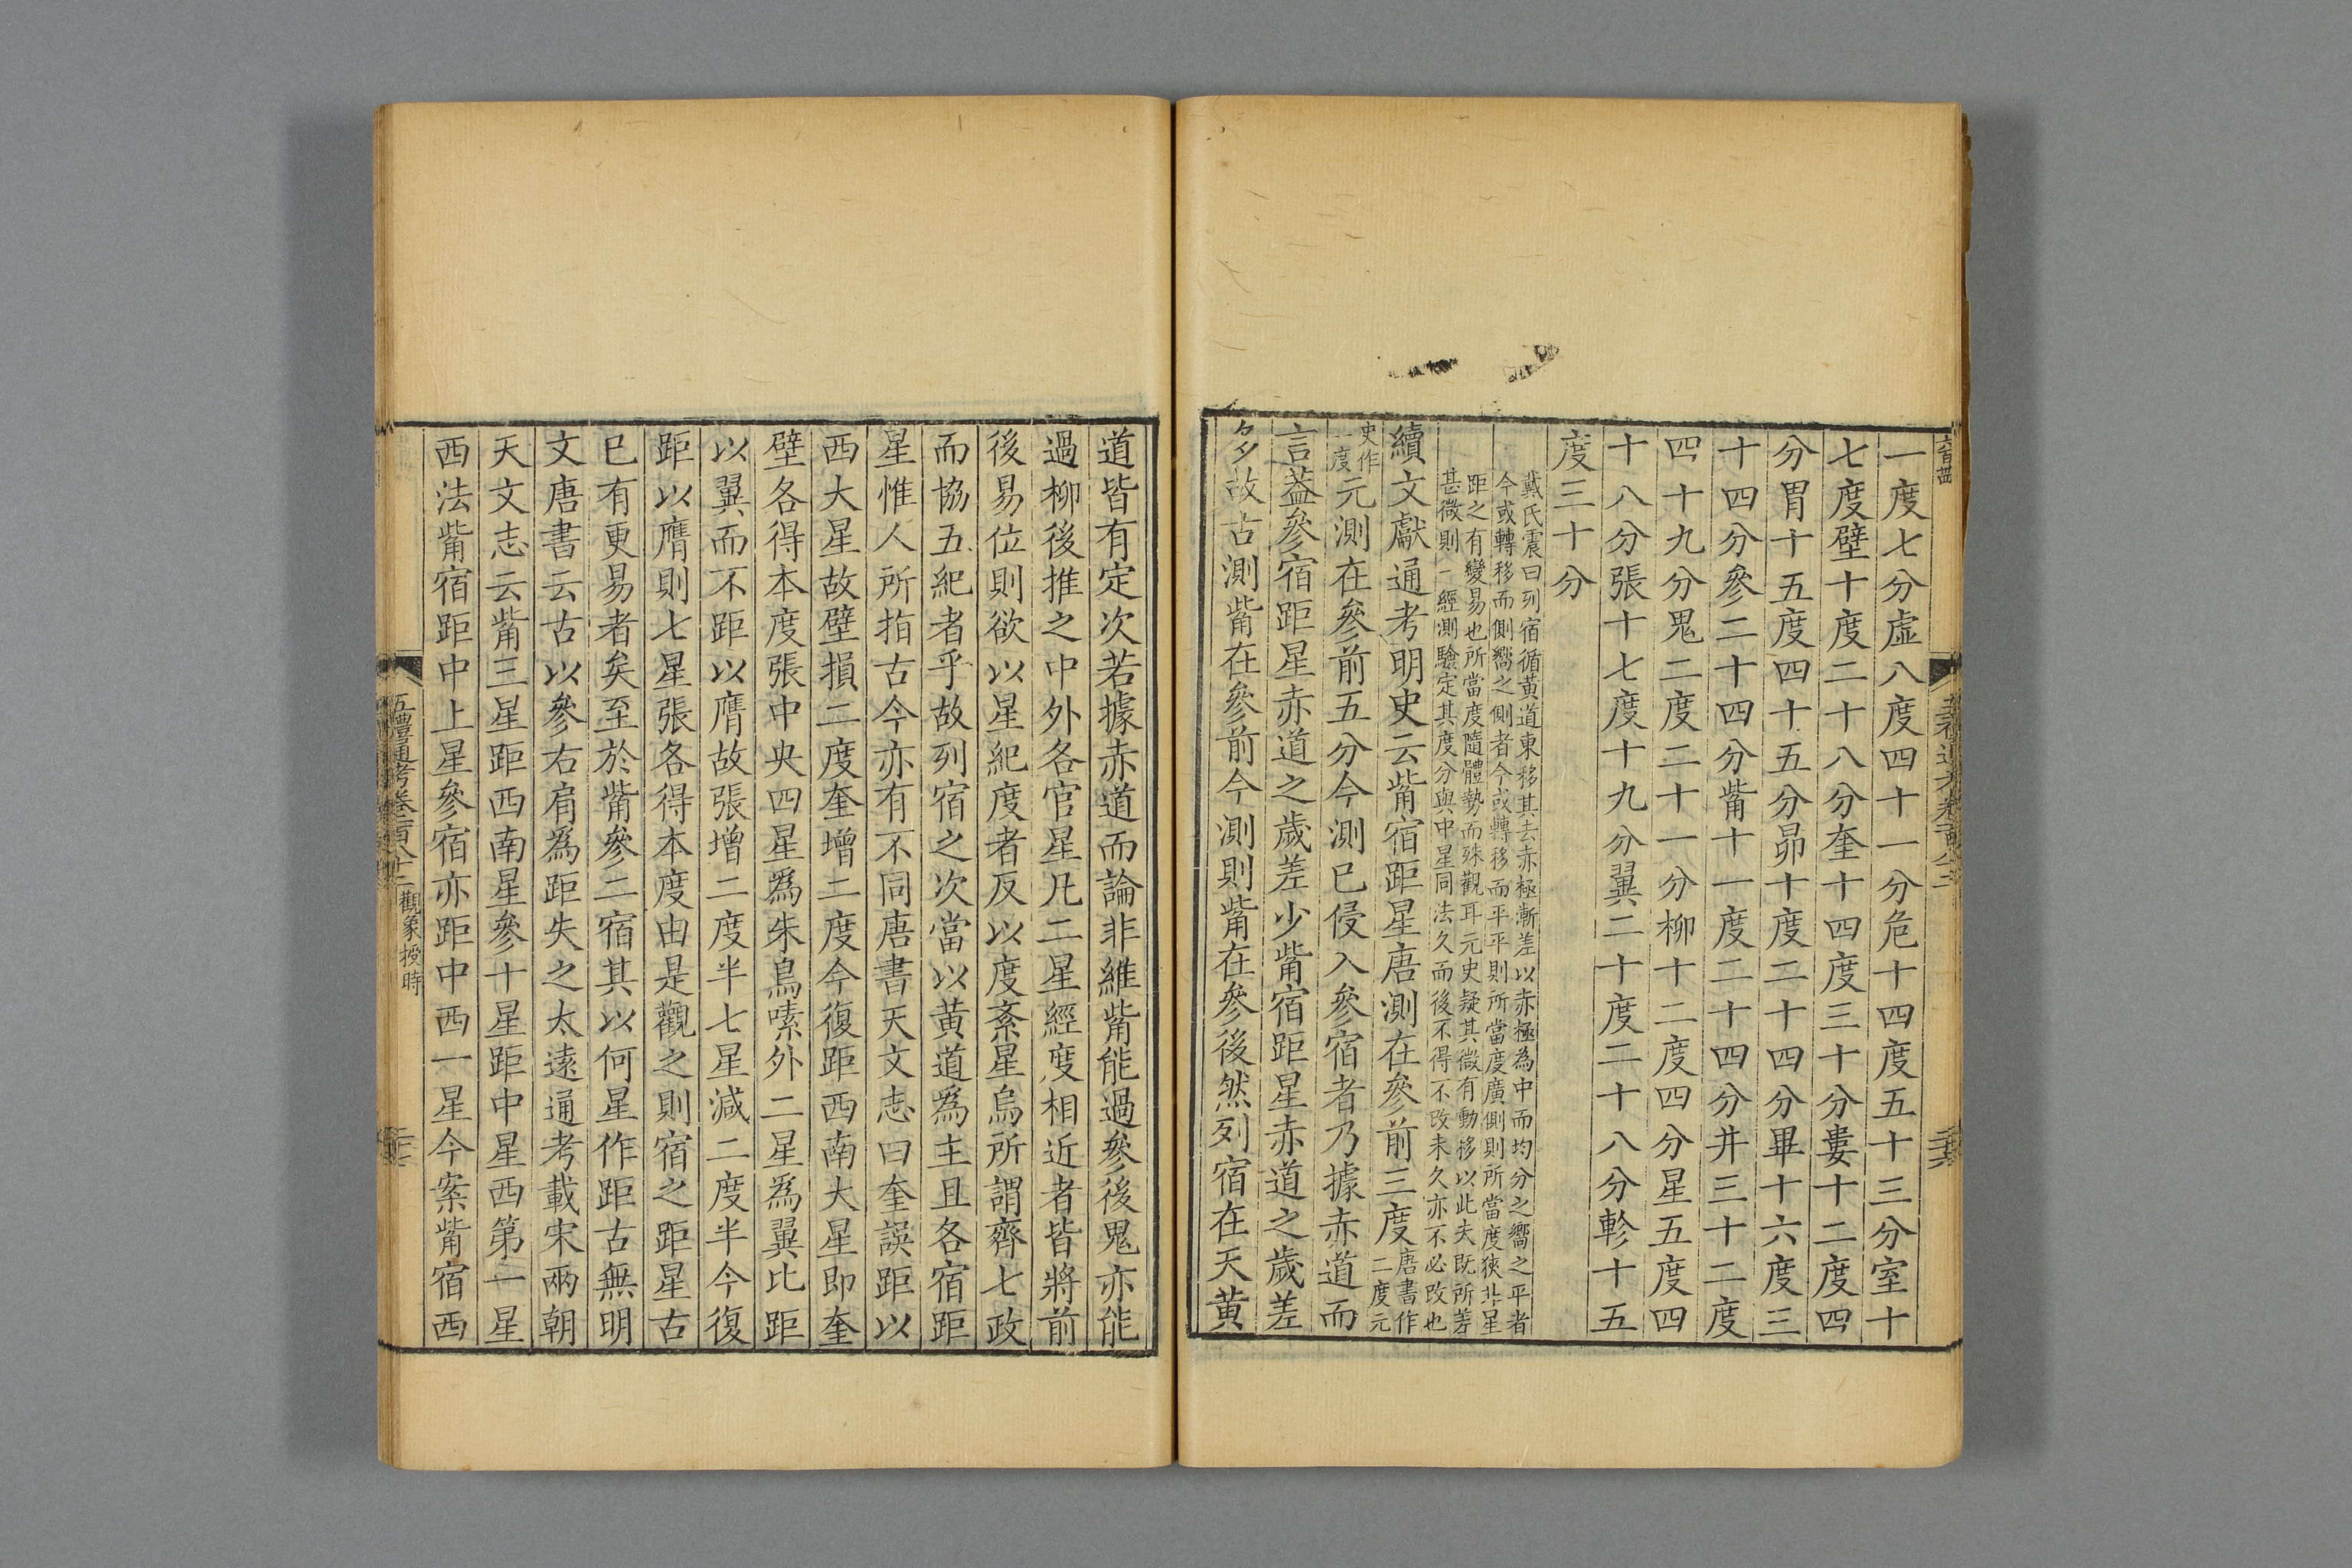 一度七分虛八度四十一分危十四度五十三分室十
七度壁十度二十八分奎十四度三十分婁十二度四
分胃十五度四十五分昴十度二十四分畢十六度三
十四分參二十四分觜十一度二十四分井三十二度
四十九分鬼二度二十一分柳十二度四分星五度四
十八分張十七度十九分翼二十度二十八分軫十五
度三十分
戴氏震曰列宿循黃道東移其去赤極漸差以赤極為中而均分之嚮之平者
今或轉移而側嚮之側者今或轉移而平平則所當度廣側則所當度狹非星
距之有變易也所當度隨體勢而殊觀耳元史疑其微有動移以此夫既所差
甚微則一經測驗定其度分與中星同法久而後不得不改未久亦不必改也
續文獻通考明史云觜宿距星唐測在參前三度唐書作二度元
史作一度元測在參前五分今測已侵入參宿者乃據赤道而
言葢參宿距星赤道之歲差少觜宿距星赤道之歲差
多故古測觜在參前今測則觜在參後然列宿在天黃
道皆有定次若據赤道而論非維觜能過參後鬼亦能
過柳後推之中外各官星凡二星經度相近者皆將前
後易位則欲以星紀度者反以度紊星烏所謂齊七政
而協五紀者乎故列宿之次當以黃道爲主且各宿距
星惟人所指古今亦有不同唐書天文志曰奎誤距以
西大星故壁損二度奎增二度今復距西南大星即奎
壁各得本度張中央四星爲朱鳥嗉外二星爲翼比距
以翼而不距以膺故張增二度半七星減二度半今復
距以膺則七星張各得本度由是觀之則宿之距星古
巳有更易者矣至於觜參二宿其以何星作距古無明
文唐書云古以參右肩爲距失之太遠通考載宋兩朝
天文志云觜三星距西南星參十星距中星西第一星
西法觜宿距中上星參宿亦距中西一星今案觜宿西
五禮通考卷一百八十二 觀象授時